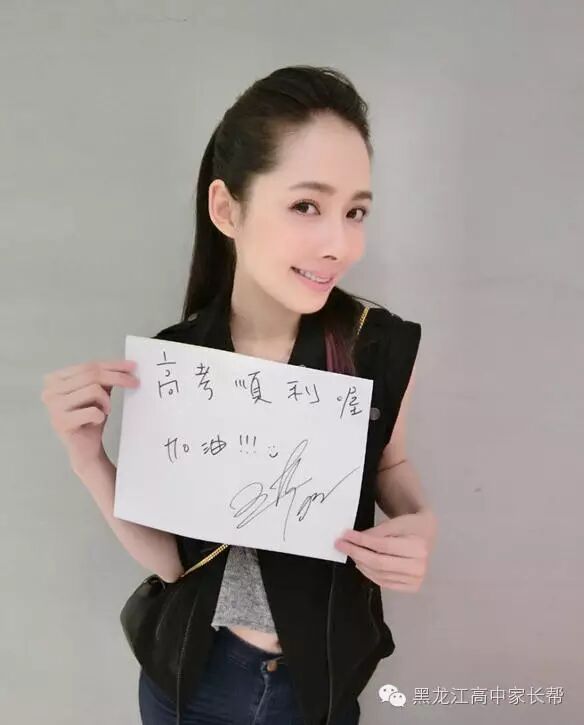 高考順利喔
加油!!!
黑龙江高中家长帮